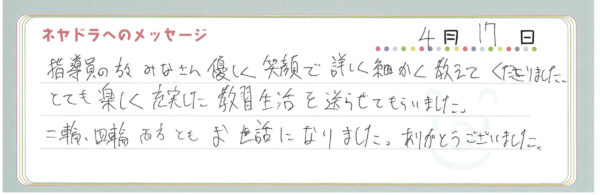 ネヤドラへのメッセージ
4月17日
指導員の方 みなさん 優しく 笑顔で 詳しく 細かく 教えて くださりました。
とても 楽しく 充実した 教習生活 を 送らせてもらいました。
二輪、四輪 両方とも お世話に なりました。ありがとうございました。